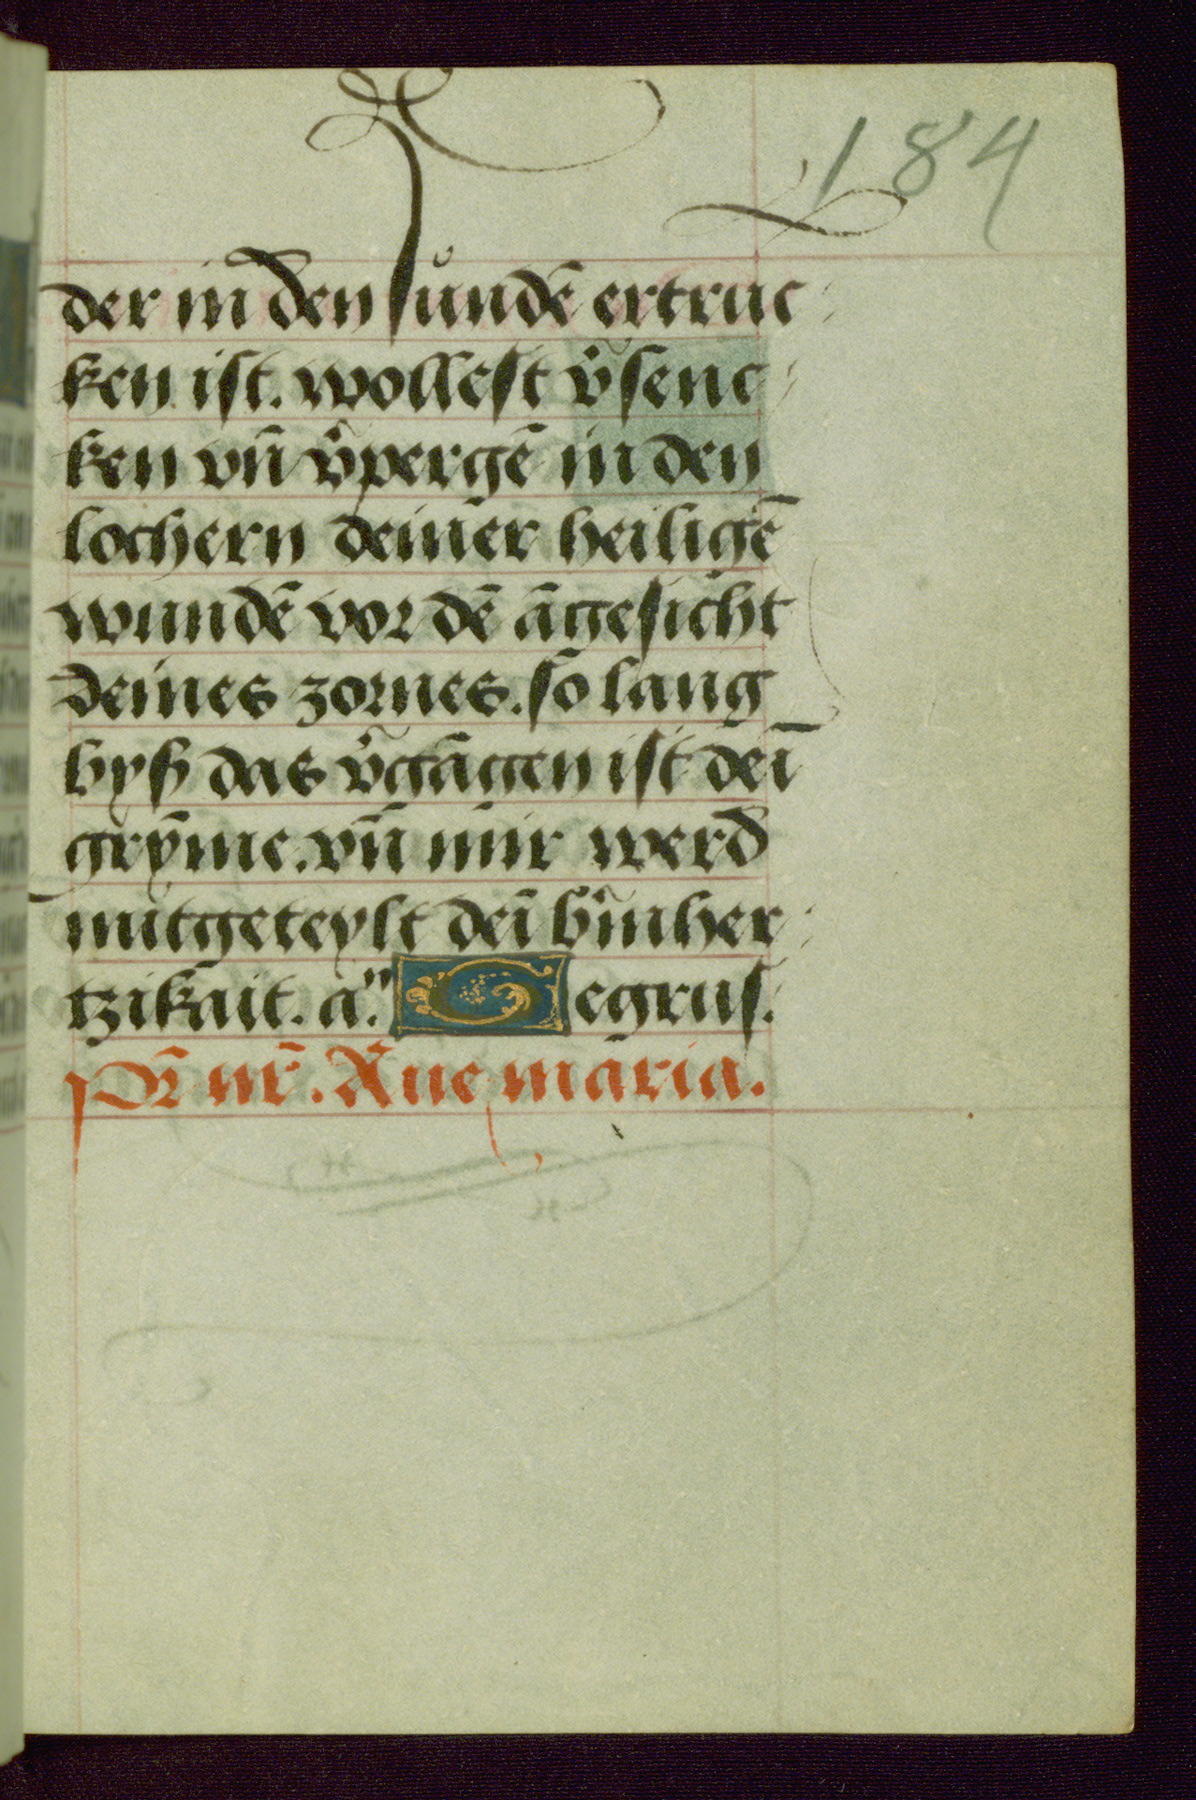 184
der in den sůndē ertruc
ken ist. wollest v̉senc
ken vn̄ v̉pergē in den
lochern deiner heiligē
wundē vor dē āgesicht
deines zornes. so lang
byß das v̉gāgen ist deī
gry̅me. vn̄ mir werd
mitgeteylt deī b̉mher
tzikait. a". Gegrus.
Pr̄ nr̄. Aue maria.